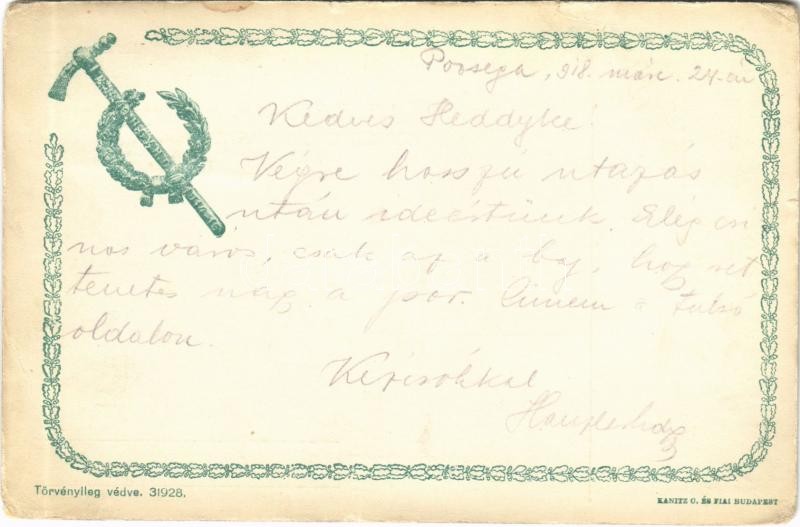 Pozsega, 918. márc. 24-én
Kedves Heddyke!
Végre hosszú utazás
után ideértünk. Elég csi
nos város, csak az a baj, hogy ret
tenetes nagy a por. Címem a túlsó
oldalon.
Kézcsókkal
Törvénylleg védve. 31928.
KANITZ C. ÉS FIAI BUDAPEST